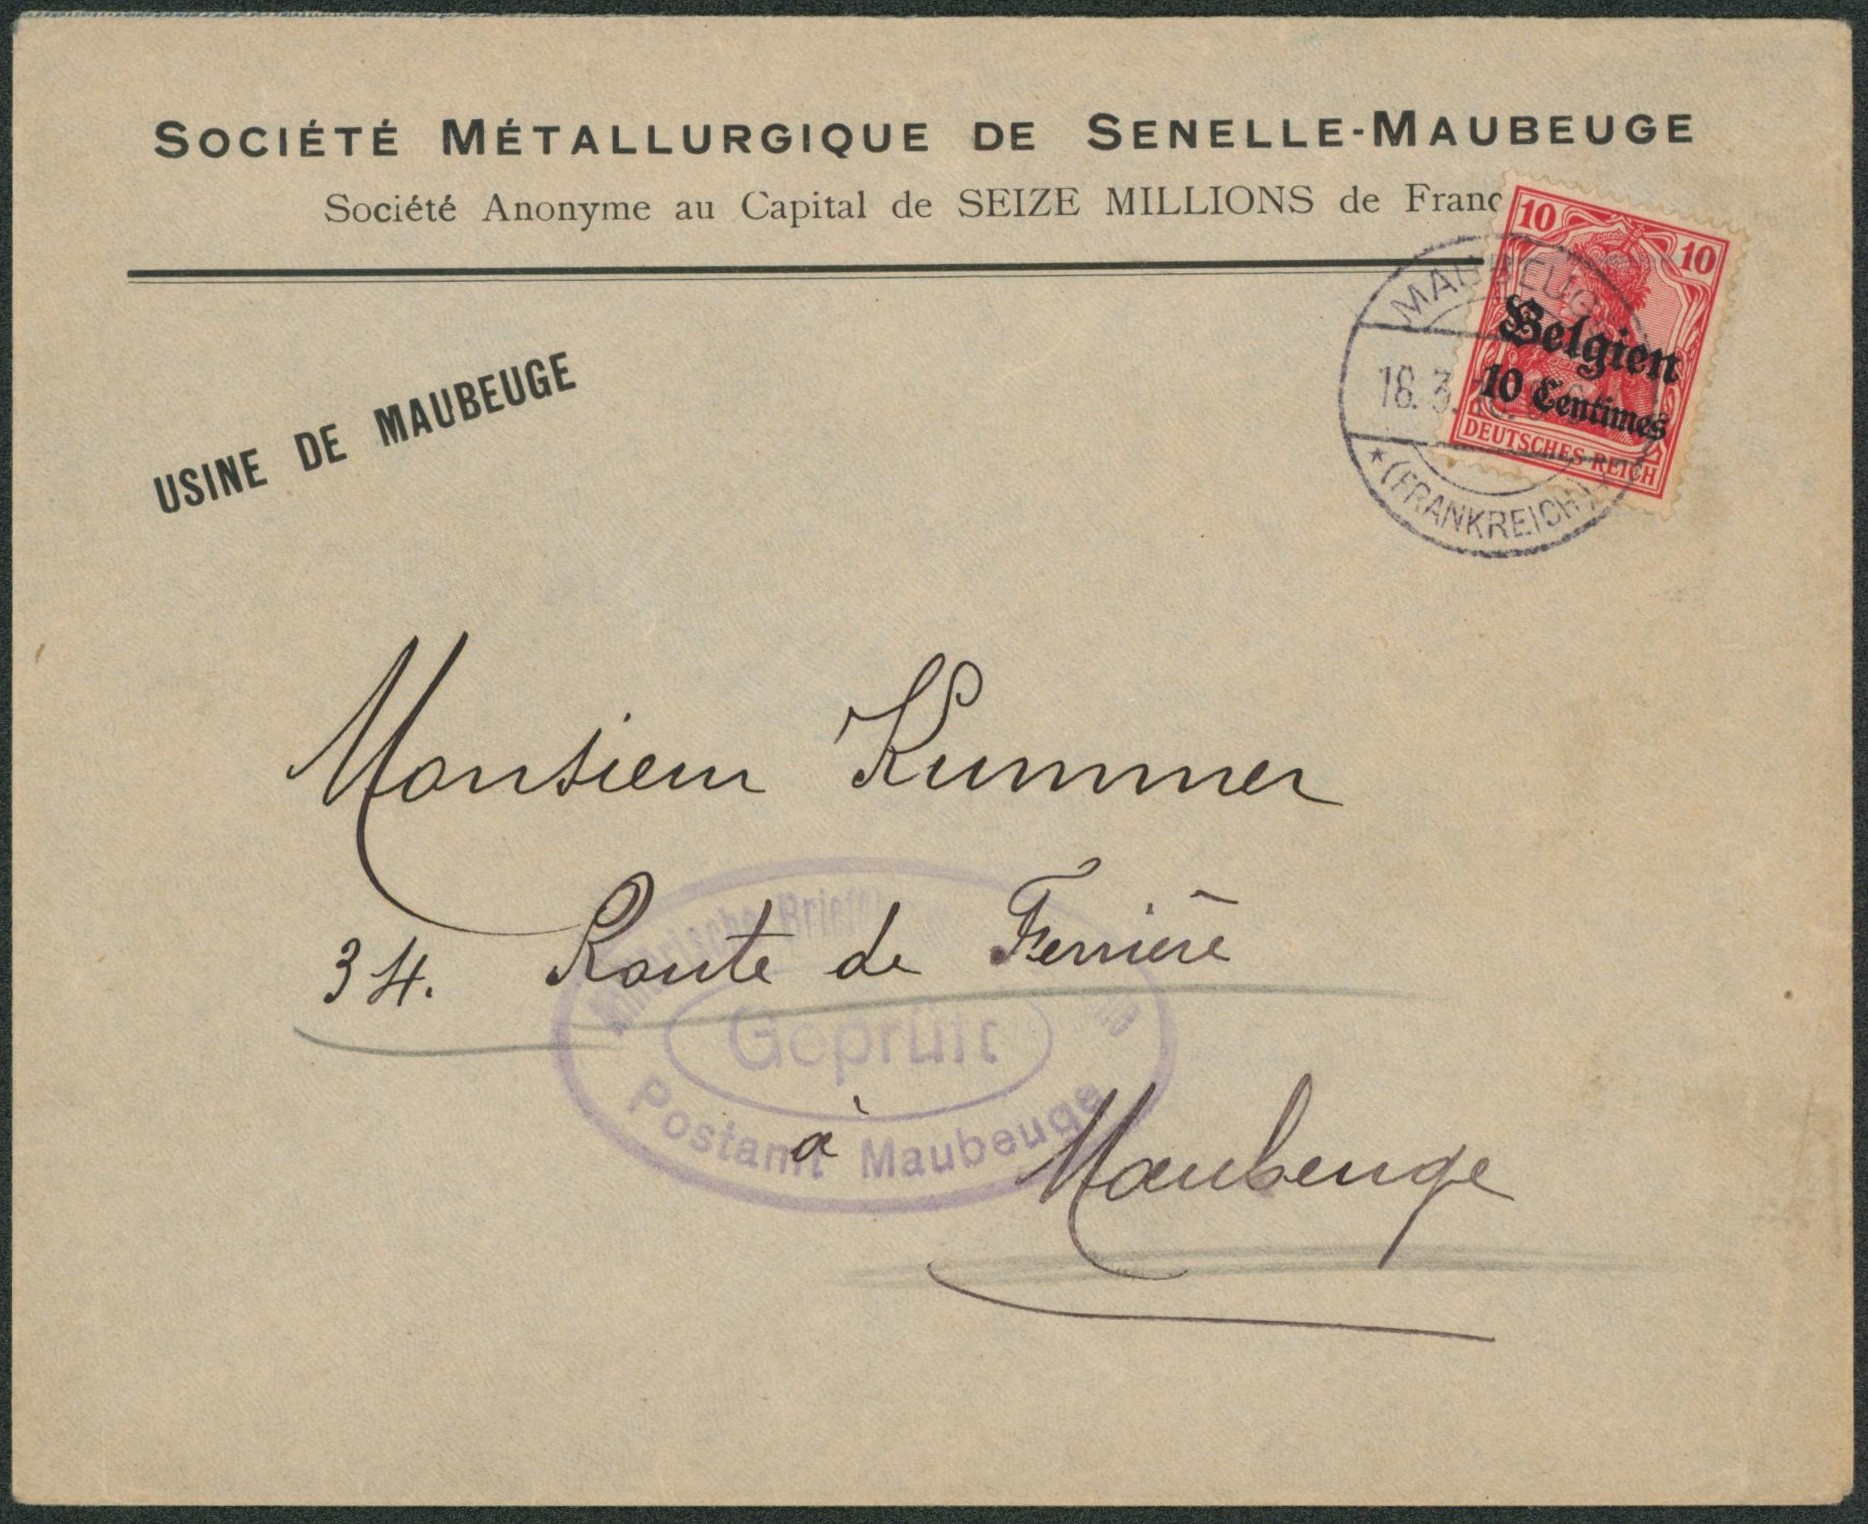 SOCIÉTÉ MÉTALLURGIQUE DE SENELLE-MAUBEUGE
Société Anonyme au Capital de SEIZE MILLIONS de Franc
10 10
Belgien
10 Centimes
DEUTSCHES REICH
MAUBEUGE
18.3.
* (FRANKREICH) *
USINE DE MAUBEUGE
Monsieur Kummer
34. Route de Ferrière
à Maubeuge
Militärische
Geprüft
Postamt Maubeuge